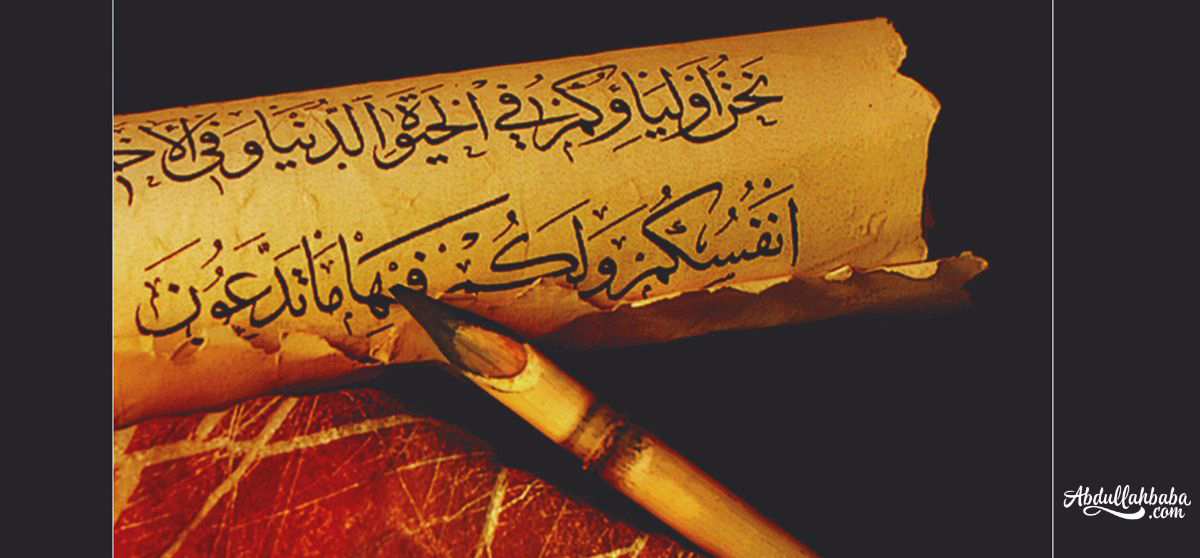 نَحْنُ اَوْلِيَاؤُكُمْ فِي الْحَيٰوةِ الدُّنْيَا وَفِي الْاٰخِ
اَنْفُسُكُمْ وَلَكُمْ فِيْهَا مَا تَدَّعُونَ
Abdullahbaba
.com